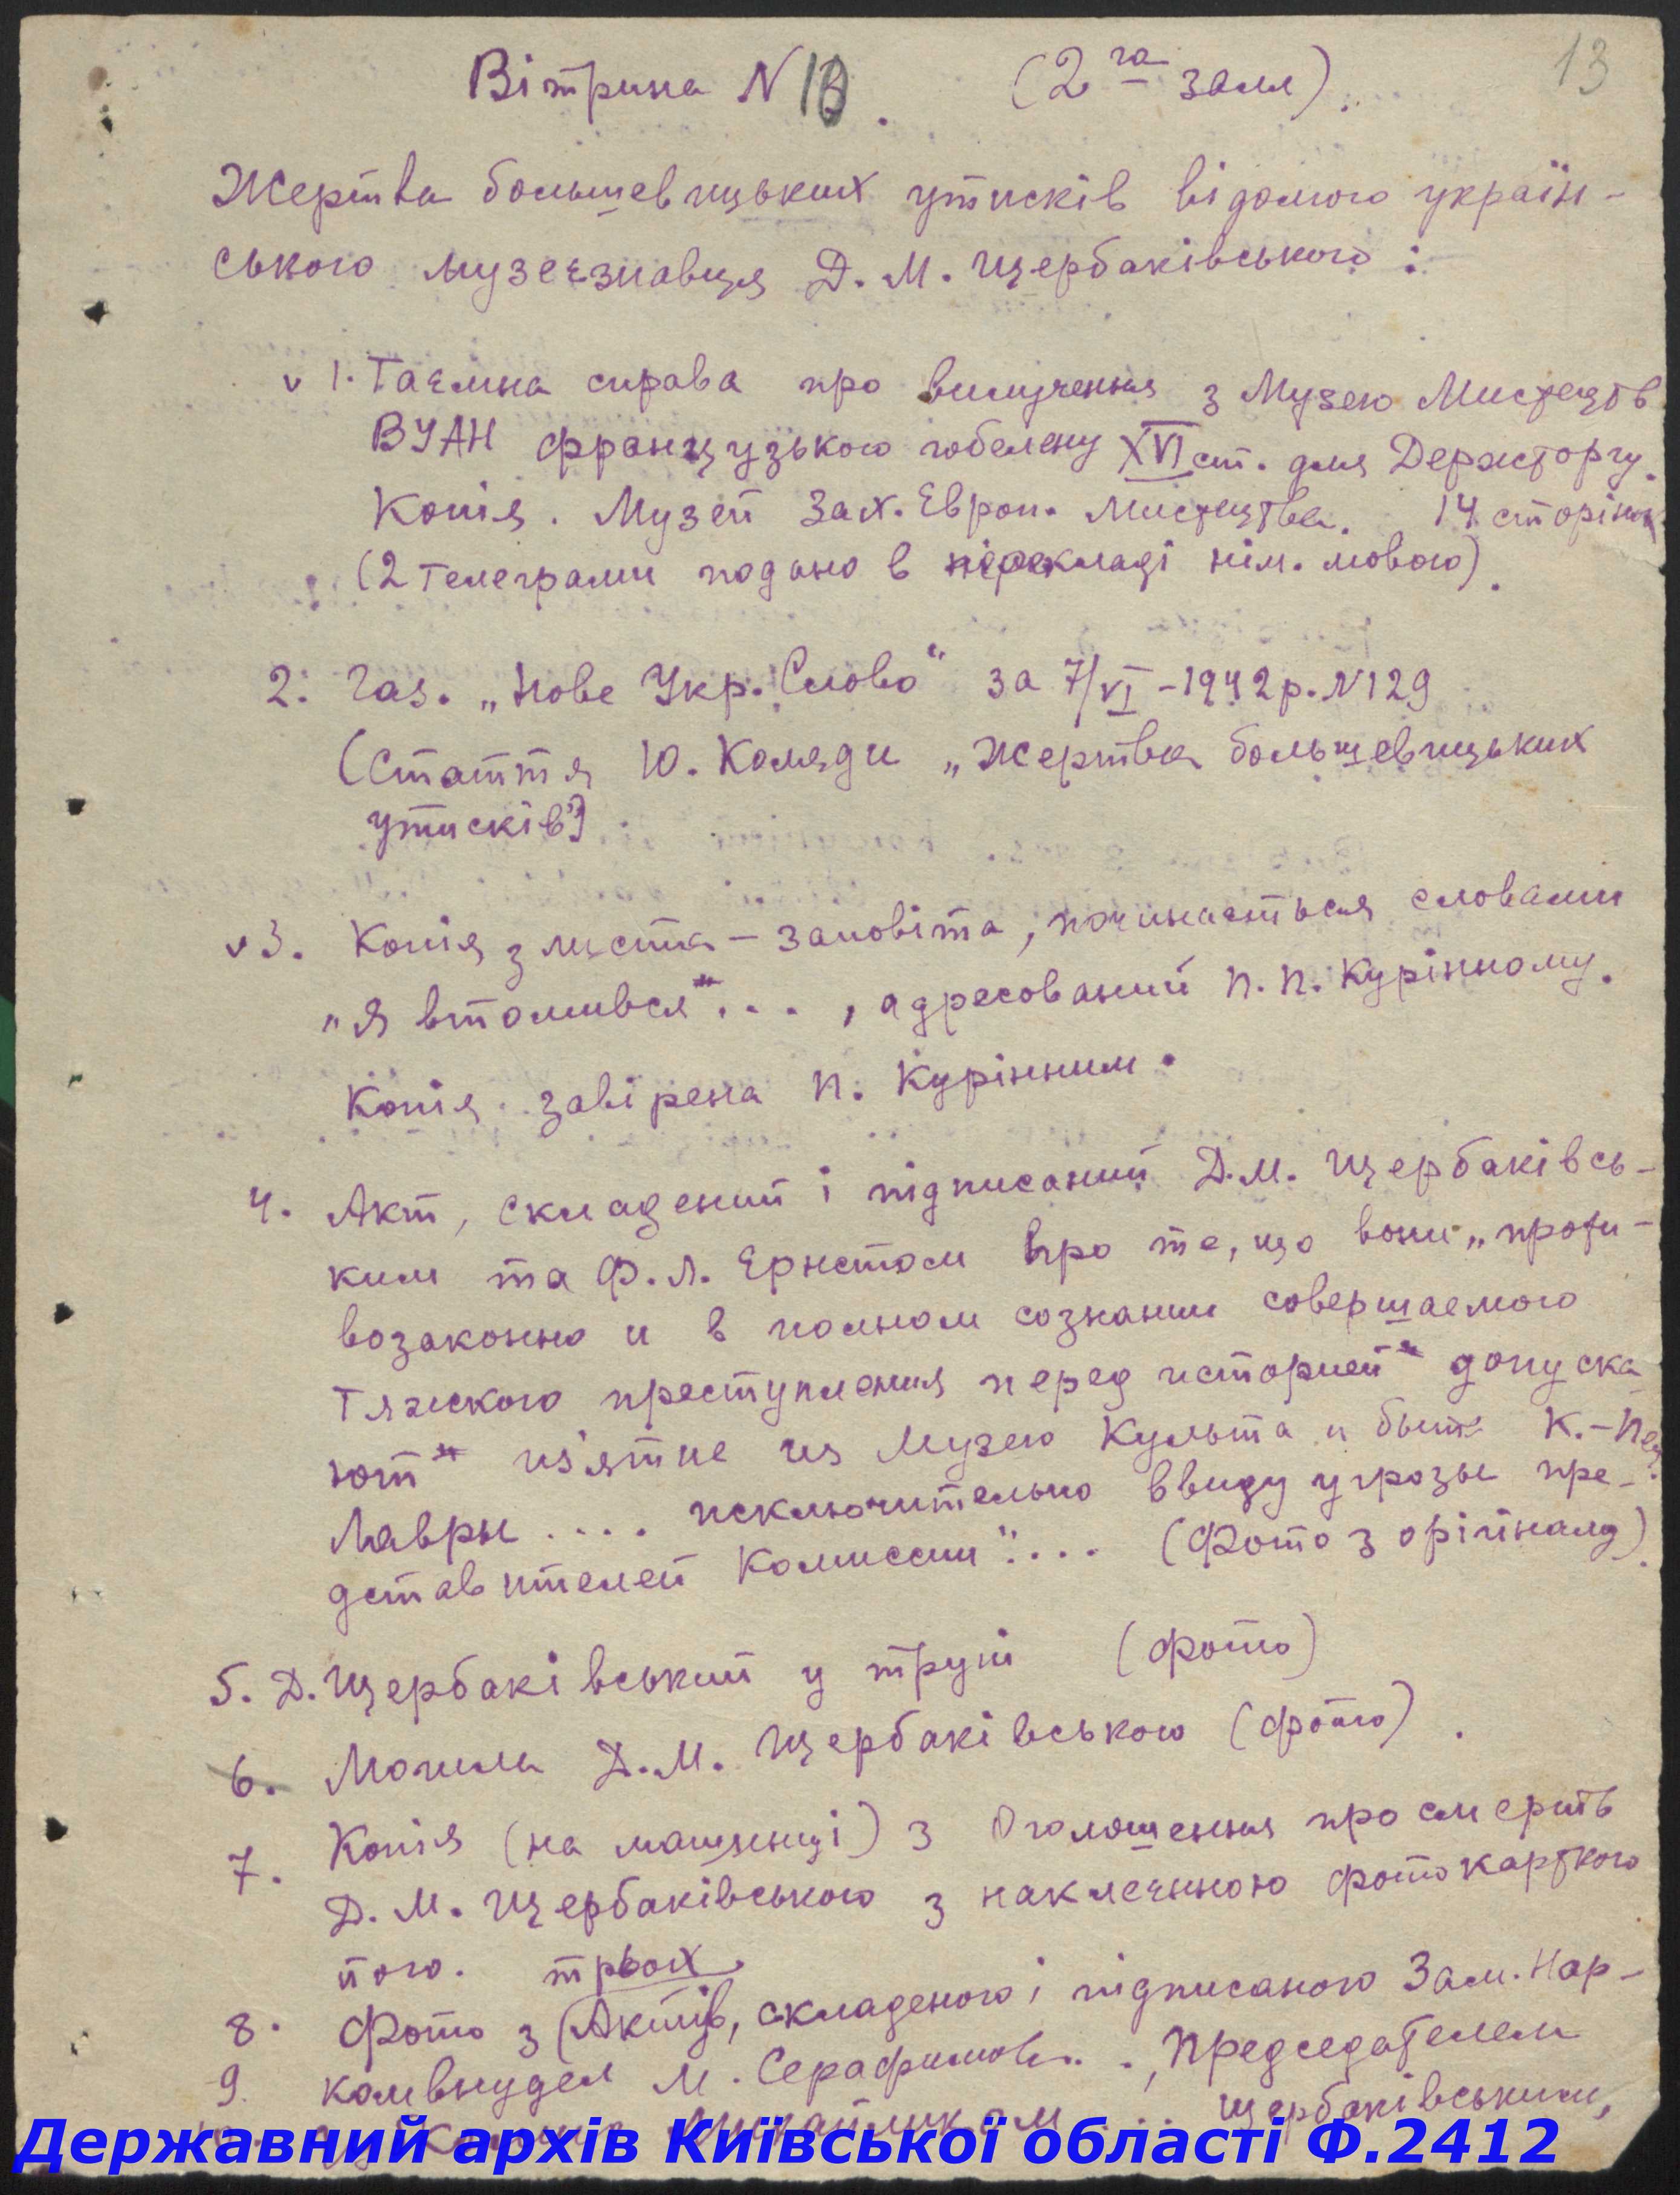 13
Вітрина N 18. (2га заля).
Жертва большевицьких утисків відомого україн-
ського музеєзнавця Д. М. Щербаківського:
v 1. Таємна справа про вилучення з Музею Мистецтв
ВУАН французького гобелену XVI ст. для Держторгу.
Копія. Музей Зах. Европ. Мистецтва. 14 сторінок
(2 телеграми подано в перекладі нім. мовою).
2. Газ. „Нове Укр. Слово" за 7/VI - 1942 р. N 129
(Стаття Ю. Коляди „Жертва большевицьких
утисків")
v 3. Копія з листа - заповіта, починається словами
„Я втомився"..., адресований П. П. Курінному.
Копія завірена П. Курінним.
4. Акт, складений і підписаний Д. М. Щербаківсь-
ким та Ф. Л. Ернстом про те, що вони „проти-
возаконно и в полном сознании совершаемого
тяжкого преступления перед историей" допуска
ют" из'ятие из Музею Культа и быта К.-Печ.
Лавры .... исключительно ввиду угрозы пре-
дставителей Комиссии".... (Фото з орігіналу).
5. Д. Щербаківський у труні (фото)
6. Могила Д. М. Щербаківського (фото).
7. Копія (на машинці) з Оголошення про смерть
Д. М. Щербаківського з наклеєнною фотокарткою
його. трьох
8. Фото з Актів, складеного і підписаного Зам. Нар-
9. комвнудел М. Серафимов.., Председателем
Щербаківським,
Державний архів Київської області Ф.2412